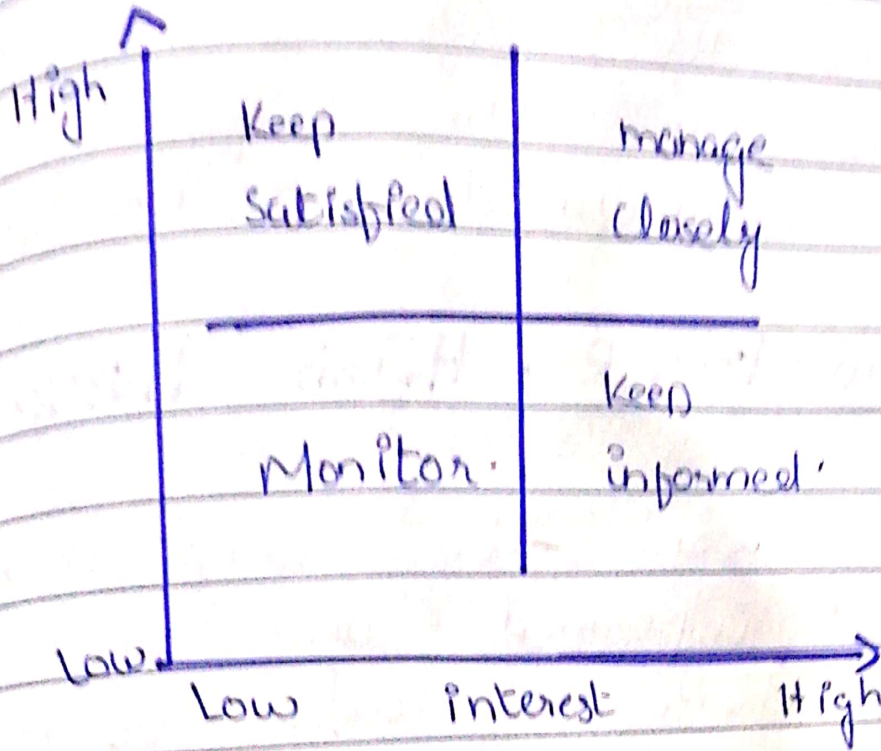 High
Keep
Satisfied
manage
Closely
Monitor.
Keep
informed.
Low
Low interest High